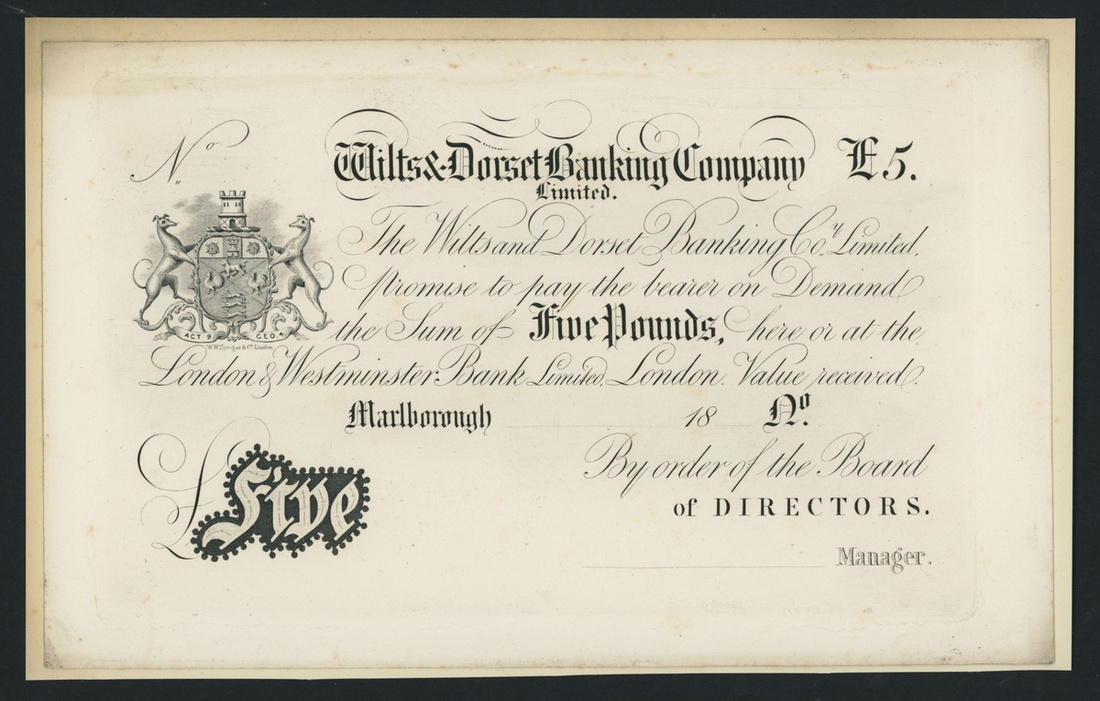 No
Wilts & Dorset Banking Company £5.
Limited.
The Wilts and Dorset Banking Coy. Limited,
promise to pay the bearer on Demand
the Sum of Five Pounds, here or at the
ACT 9. GEO. 4
W.W. Sprague & Co. London
London & Westminster Bank Limited, London. Value received.
Marlborough 18 No.
By order of the Board
of DIRECTORS.
£Five
Manager.